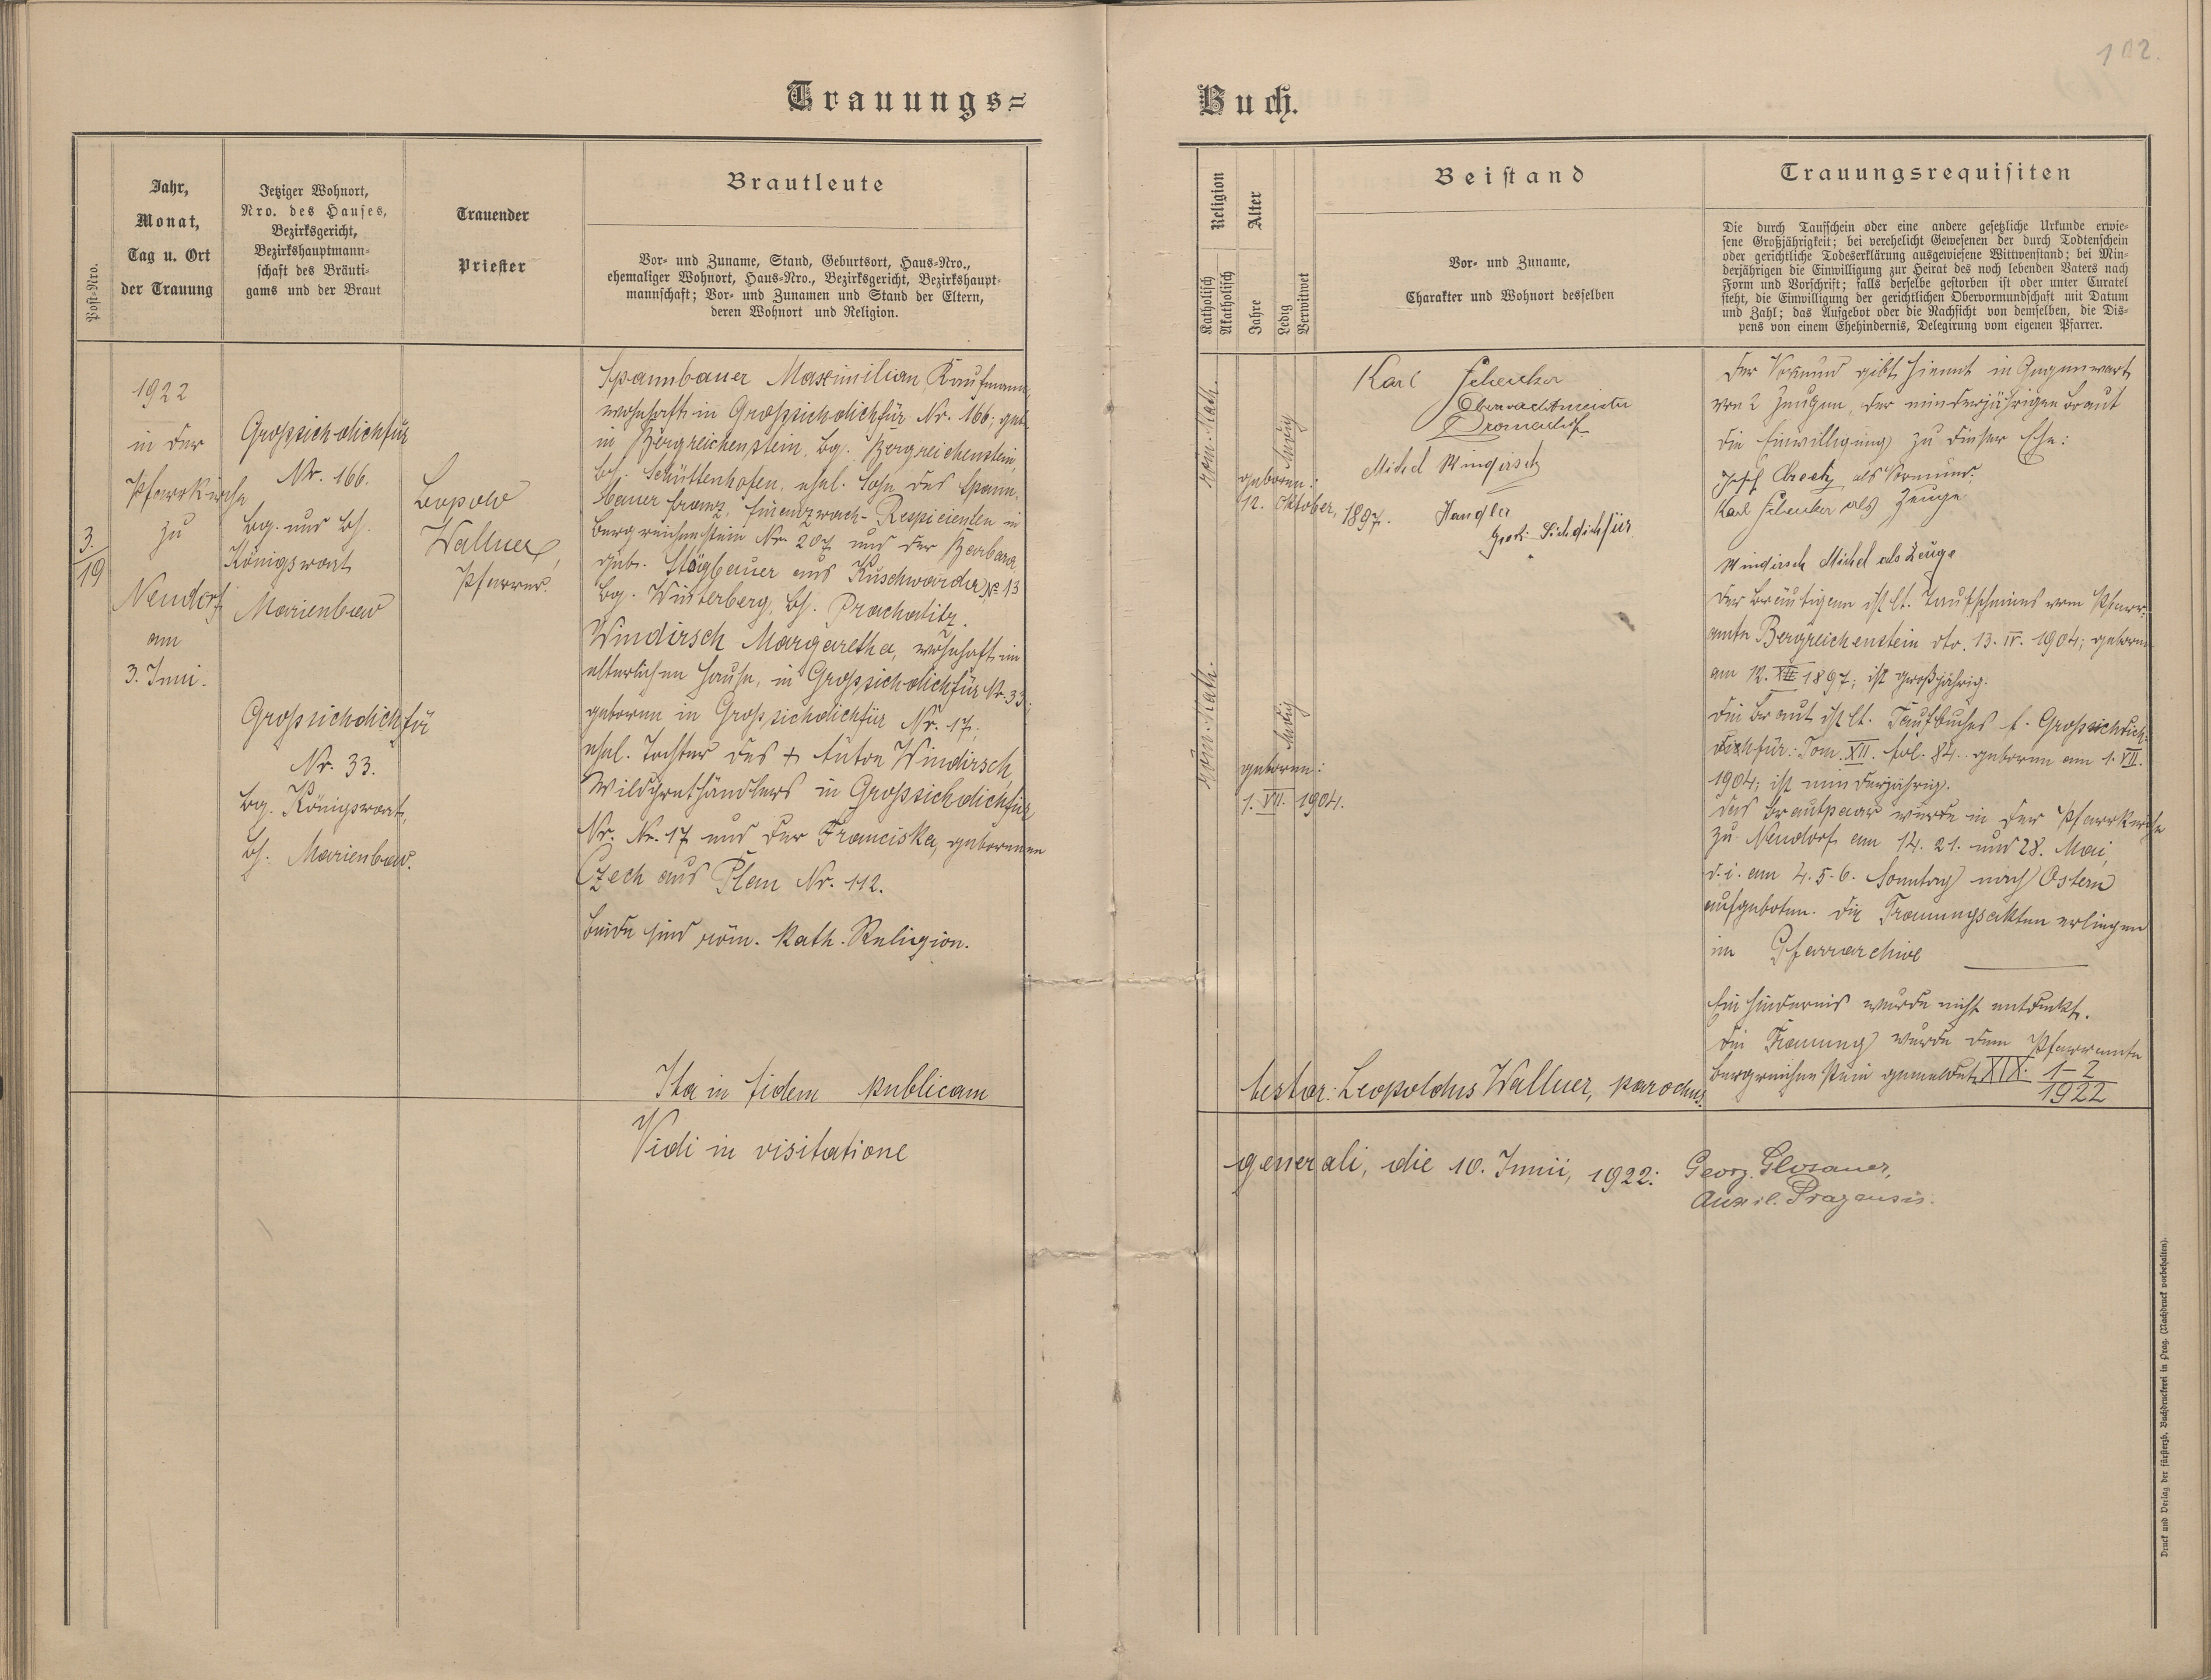 102.
Trauungs=
Buch.
Post-Nro.
Jahr,
Monat,
Tag u. Ort
der Trauung
Jetziger Wohnort,
Nro. des Hauses,
Bezirksgericht,
Bezirkshauptmann-
schaft des Bräuti-
gams und der Braut
Trauender
Priester
Brautleute
Vor- und Zuname, Stand, Geburtsort, Haus-Nro.,
ehemaliger Wohnort, Haus-Nro., Bezirksgericht, Bezirkshaupt-
mannschaft; Vor- und Zunamen und Stand der Eltern,
deren Wohnort und Religion.
Religion
Katholisch
Akatholisch
Alter
Jahre
Ledig
Verwitwet
Beistand
Vor- und Zuname,
Charakter und Wohnort desselben
Trauungsrequisiten
Die durch Taufschein oder eine andere gesetzliche Urkunde erwie-
sene Großjährigkeit; bei verehelicht Gewesenen der durch Todtenschein
oder gerichtliche Todeserklärung ausgewiesene Wittwenstand; bei Min-
derjährigen die Einwilligung zur Heirat des noch lebenden Vaters nach
Form und Vorschrift; falls derselbe gestorben ist oder unter Curatel
steht, die Einwilligung der gerichtlichen Obervormundschaft mit Datum
und Zahl; das Aufgebot oder die Nachsicht von demselben, die Dis-
pens von einem Ehehindernis, Delegirung vom eigenen Pfarrer.
3.
19
1922
in der
Pfarrkirche
zu
Neudorf
am
3. Juni.
Großsichdichfür
Nr. 166.
Bg. und Bh.
Königswart
Marienbad
Großsichdichfür
Nr. 33.
Bg. Königswart,
Bh. Marienbad.
Leopold
Wallner,
Pfarrer.
Spannbauer Maximilian, Kaufmann,
wohnhaft in Großsichdichfür Nr. 166; geb.
in Bergreichenstein, Bg. Bergreichenstein,
Bh. Schüttenhofen, ehel. Sohn des Spann-
bauer Franz, Finanzwach-Respicienten in
Bergreichenstein Nr. 207 und der Barbara
geb. Stögbauer aus Kuschwarda Nr 13
Bg. Winterberg, Bh. Prachatitz.
Windirsch Margaretha, wohnhaft im
elterlichen Hause, in Großsichdichfür Nr. 33;
geboren in Großsichdichfür Nr. 17;
ehel. Tochter des + Anton Windirsch,
Wildprethändlers in Großsichdichfür
Nr. Nr. 17 und der Franciska, geborenen
Czech aus Plan Nr. 112.
Beide sind röm. kath. Religion.
röm. kath.
ledig
geboren:
12. Oktober, 1897.
röm. kath.
ledig
geboren:
1. VII. 1904.
Karl Schenker
Oberwachtmeister
Michel Windirsch
Handler
Groß Sichdichfür
Der Vormund gibt hiemit in Gegenwart
von 2 Zeugen, der minderjährigen Braut
die Einwilligung zu dieser Ehe:
Josef als Vormund.
Karl Schenker als Zeuge
Windirsch Michel als Zeuge
Der Bräutigam ist lt. Taufscheines vom Pfarr-
amte Bergreichenstein dto. 13. IV. 1904; geboren
am 12. XII 1897; ist großjährig.
Die Braut ist lt. Taufbuches f. Großsichdich-
für: Tom. XII. fol. 84. geboren am 1. VII.
1904; ist minderjährig.
Das Brautpaar wurde in der Pfarrkirche
zu Neudorf am 14. 21. und 28. Mai,
d. i. am 4. 5. 6. Sonntag nach Ostern
aufgeboten. Die Trauungsakten erliegen
im Pfarrarchive
Ein Hindernis wurde nicht entdeckt.
Die Trauung wurde dem Pfarramte
Bergreichenstein gemeldet XIX. 1-2
1922
Ita in fidem publicam testor: Leopoldus Wallner, parochus.
Vidi in visitatione generali, die 10. Junii, 1922: Georg. Glosauer,
Auxil. Pragensis.
Druck und Verlag der fürsterzb. Buchdruckerei in Prag. (Nachdruck vorbehalten).